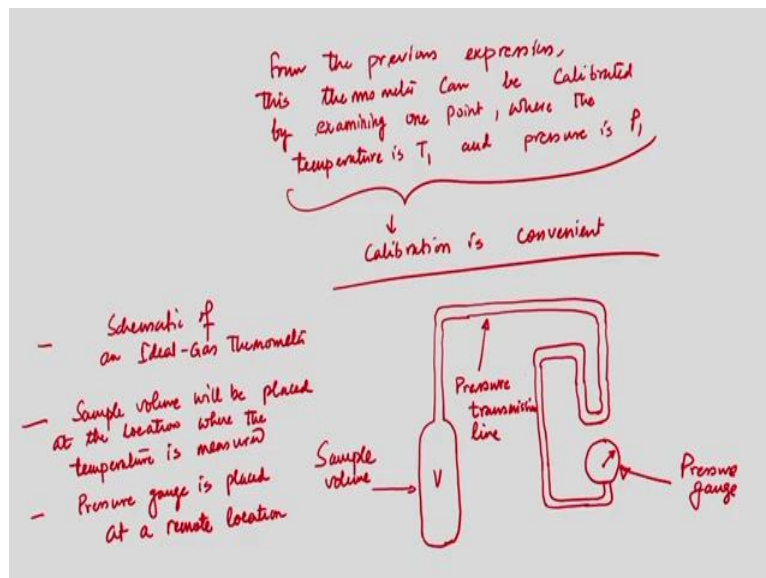 From the previous expression,
this thermometer can be calibrated
by examining one point, where the
temperature is T₁ and pressure is P₁
Calibration is convenient
- Schematic of
an Ideal-Gas Thermometer
- Sample volume will be placed
at the location where the
temperature is measured
- Pressure gauge is placed
at a remote location
Pressure
transmission
line
Sample
volume
V
Pressure
gauge